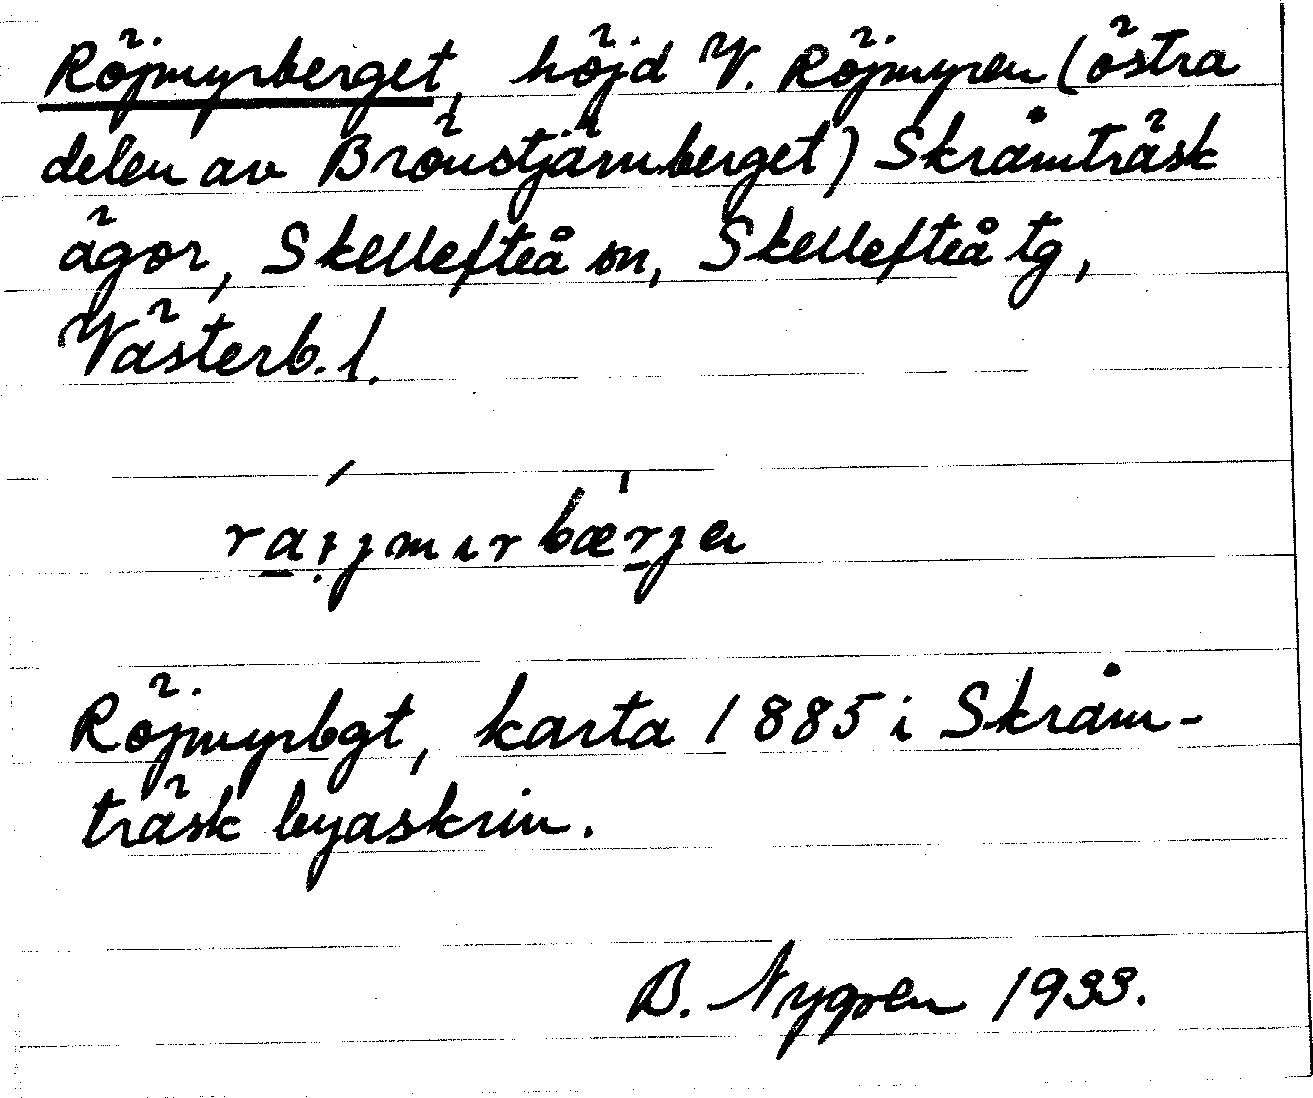 Röjmyrberget, höjd V. Röjmyren (östra
delen av Brönstjärnberget) Skråmträsk
ägor, Skellefteå sn, Skellefteå tg,
Västerb. l.
Röjmyrbgt, karta 1885 i Skråm-
träsk byaskrin.
B. Nygren 1933.